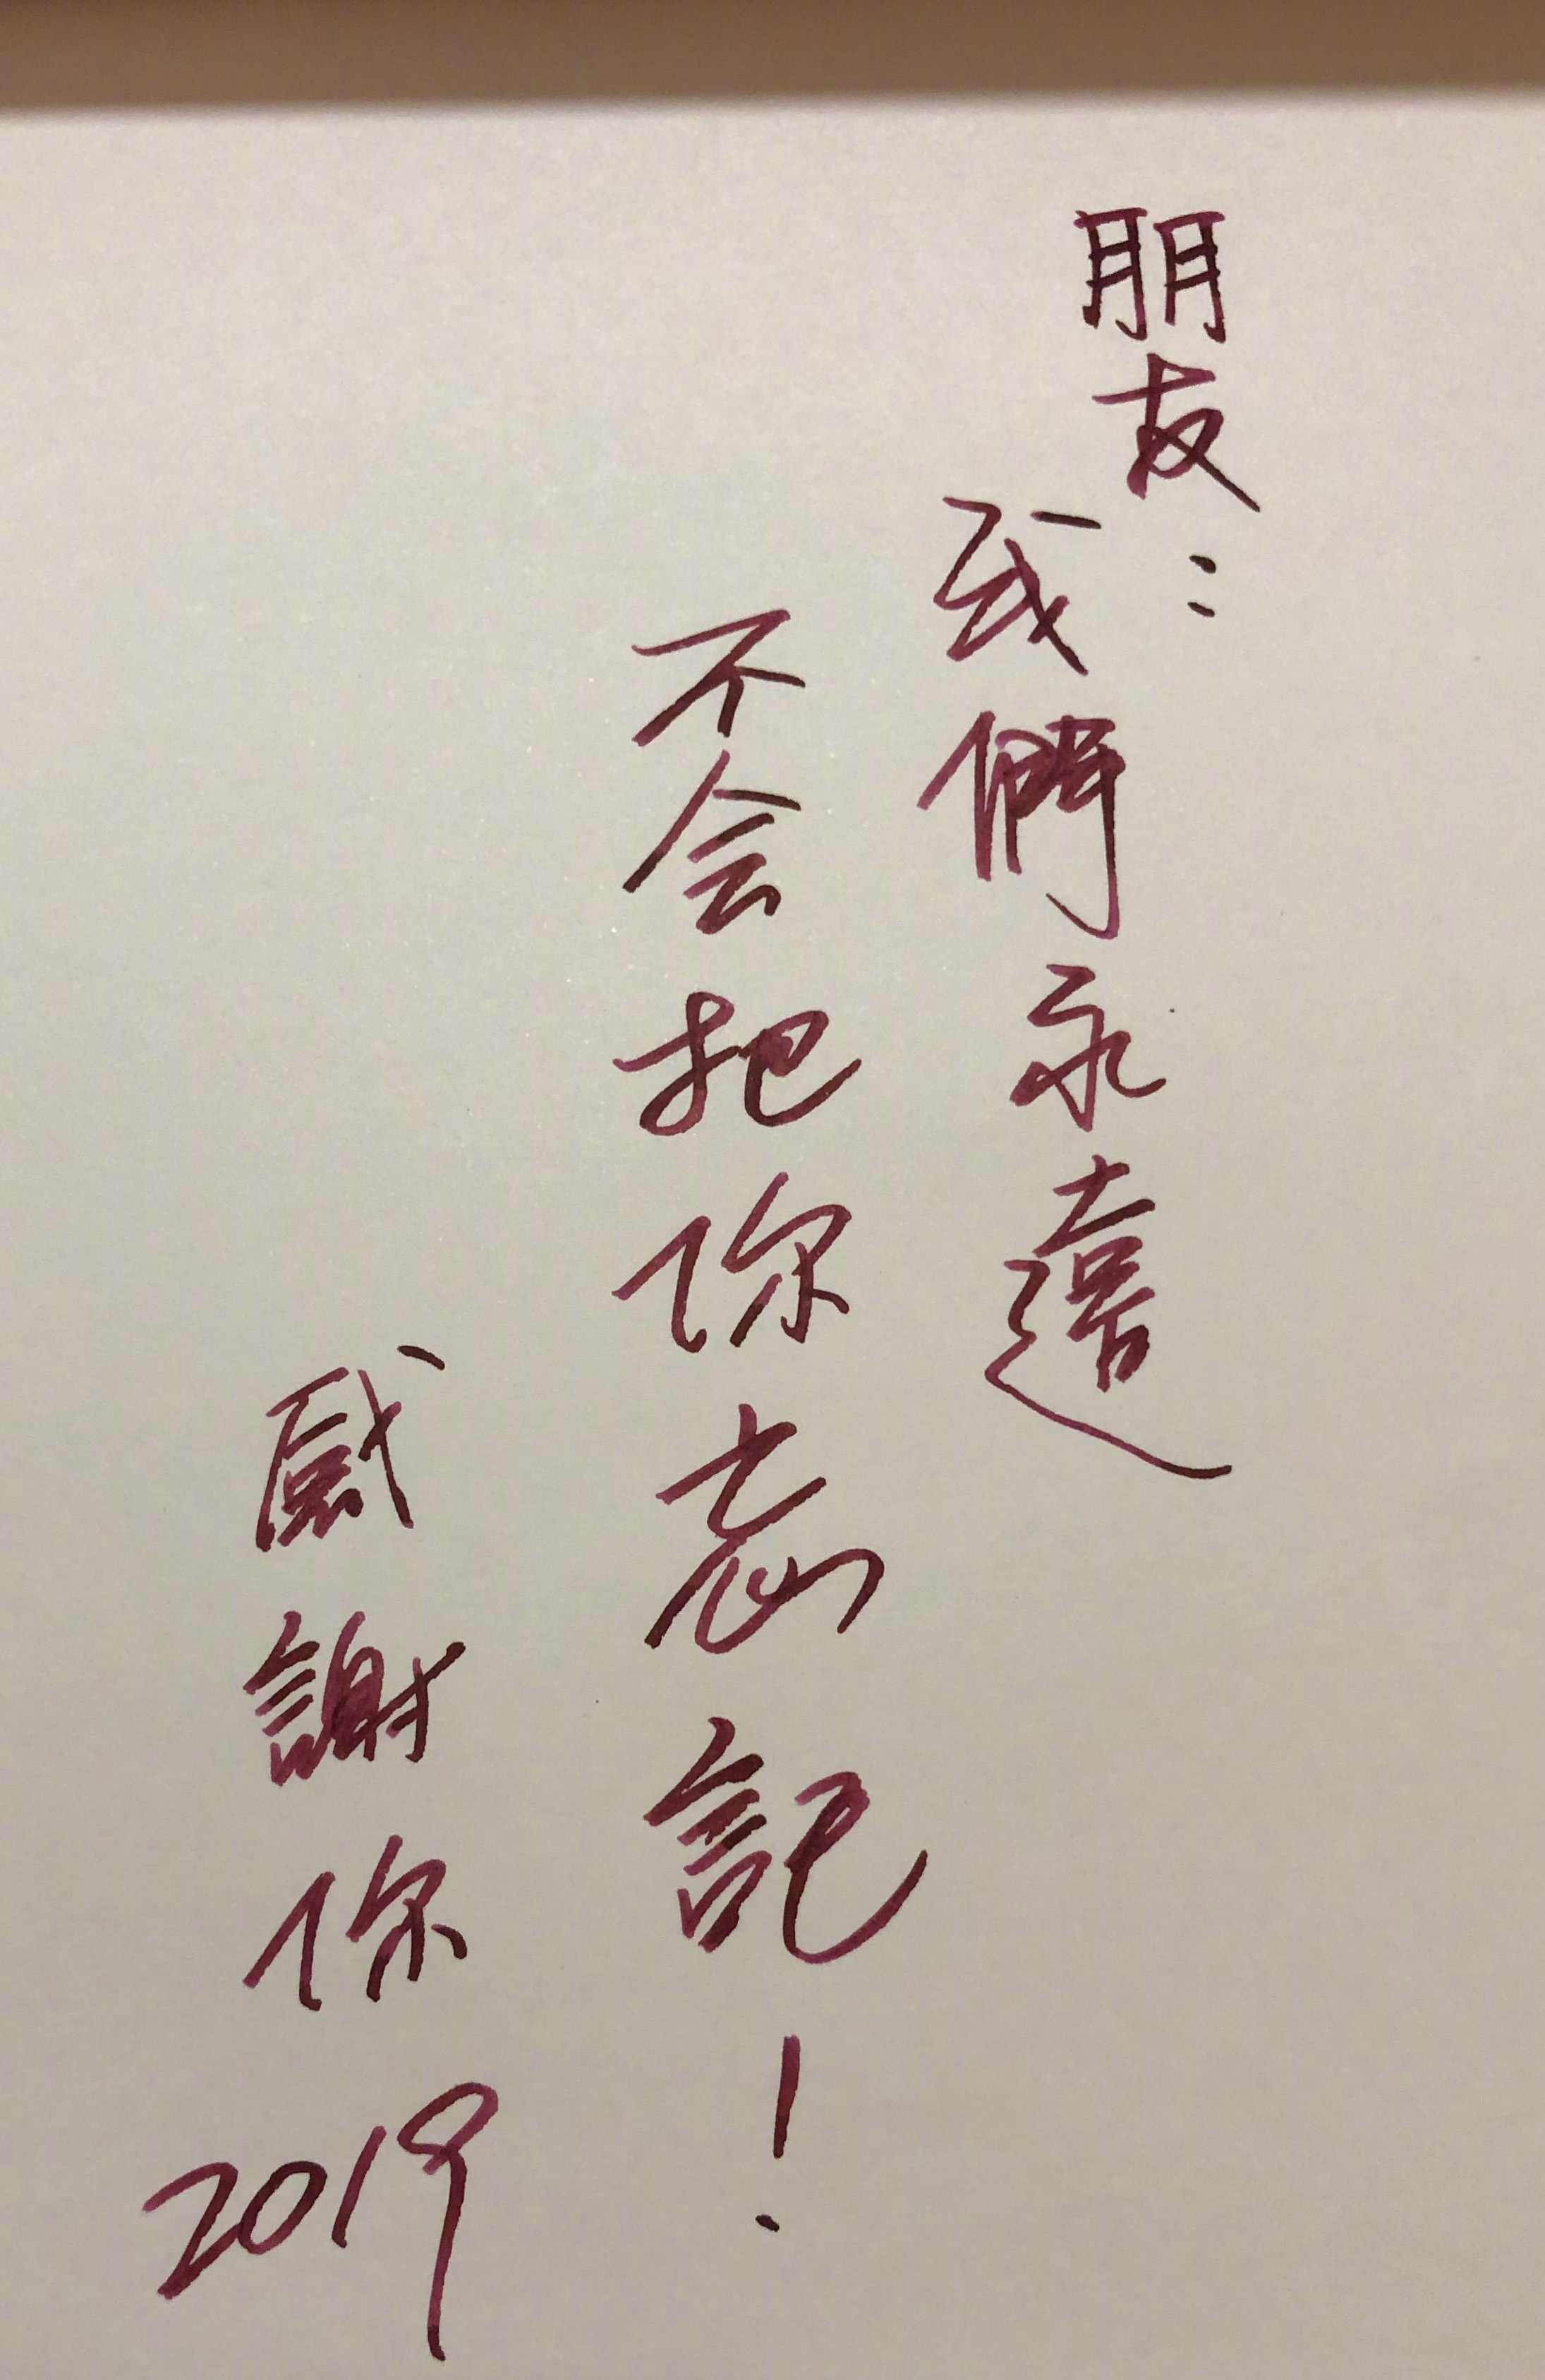 朋友：
我們永遠
不会把你忘記！
感謝你
2019